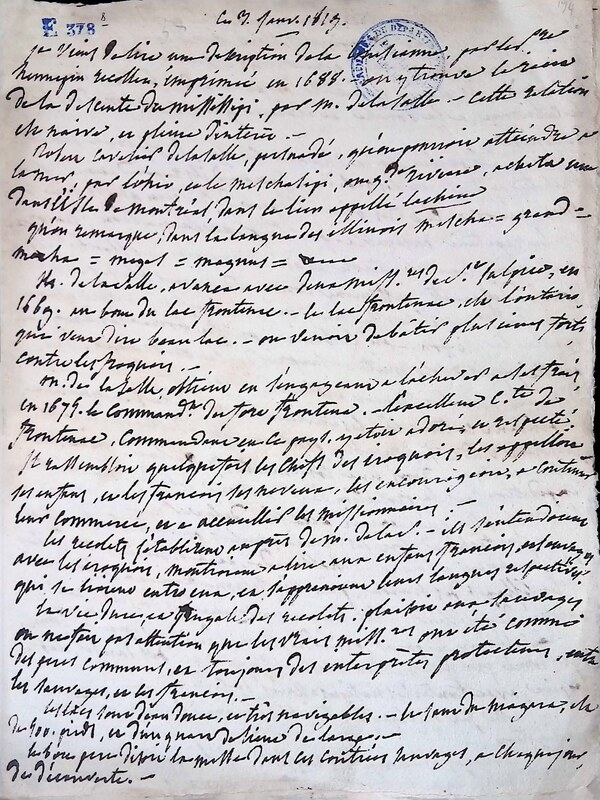 E 378 8
Ce 3. Janv. 1819.
je viens de lire une description de la Louisianne, par le Pere
hennepin recollet, imprimée en 1688 - on y trouve le récit
de la descente du missisipi, par m. de la salle - cette relation
est naive, et pleine d'interest. -
Robert Cavelier de la salle, persuadé, qu'on pouvoit atteindre a
la mer, par l'ohio, et le meschasipi, ou gde riviere, acheta une
dans l'isle de montréal, dans le lieu appellé la chine
qu'on remarque, dans la langue des illinois mescha = grand =
mecha = megas = magnus =
M. de la salle, avança avec deux miss.res de St. Sulpice, en
1669. au bout du lac frontenac. - le lac frontenac, est l'ontario,
qui veut dire beau lac. - on venoit de bâtir plusieurs forts,
contre les iroquois. -
M. de la Salle, obtint en s'engageant a l'achever a ses frais,
en 1675. le command.t du fort frontenac. - l'excellent C.te de
frontenac, commandant en ce pays, y etoit adoré, et respecté.
Il rassembloit quelquefois les chefs des iroquois, les appelloit
ses enfans, et les francois ses neveux, les encourageoit, a continuer
leur commerce, et a accueillir les missionnaires. -
les recolets s'établirent auprès de m. de la S. - ils s'entendoient
avec les iroquois, montroient a lire aux enfans francois, et sauvages
qui se lioient entre eux, et s'apprenoient leurs langues respectives.
la vie dure, et frugale des recolets, plaisoit aux sauvages
on ne fait pas attention que les vrais miss.res ont été comme
des peres communs, et toujours des interprètes protecteurs, entre
les sauvages, et les francois. -
les lacs sont d'eau douce, et très navigables. - le saut du niagara, est
de 500. pieds, et d'un quart de lieue de large. -
le bon pere disoit la messe dans ces contrées sauvages, a chaque jour,
des découverte. -